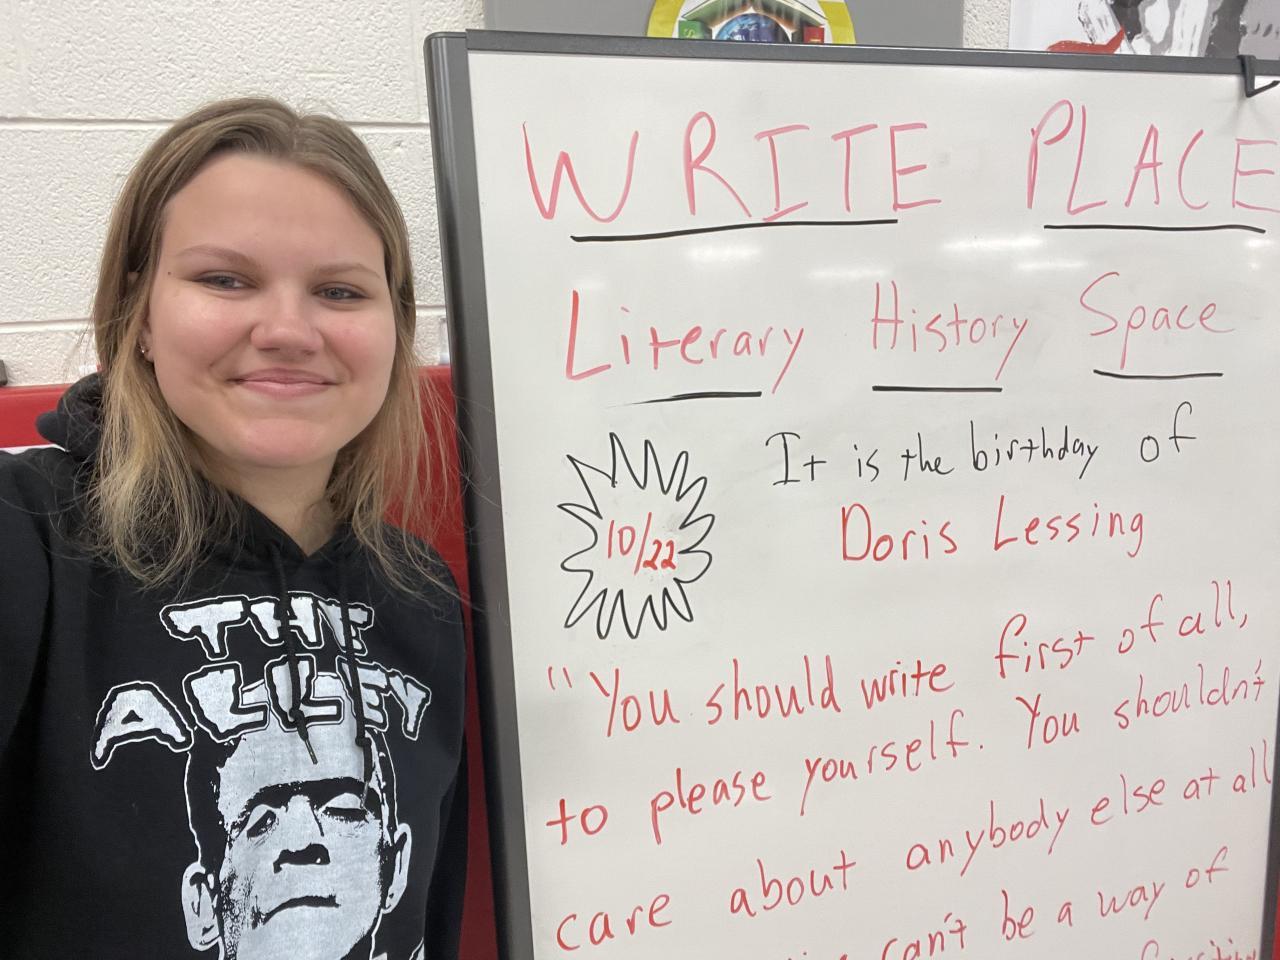 WRITE PLACE
Literary History Space
10/22
It is the birthday of
Doris Lessing
"You should write first of all,
to please yourself. You shouldn't
care about anybody else at all
can't be a way of
THE
ALLEY